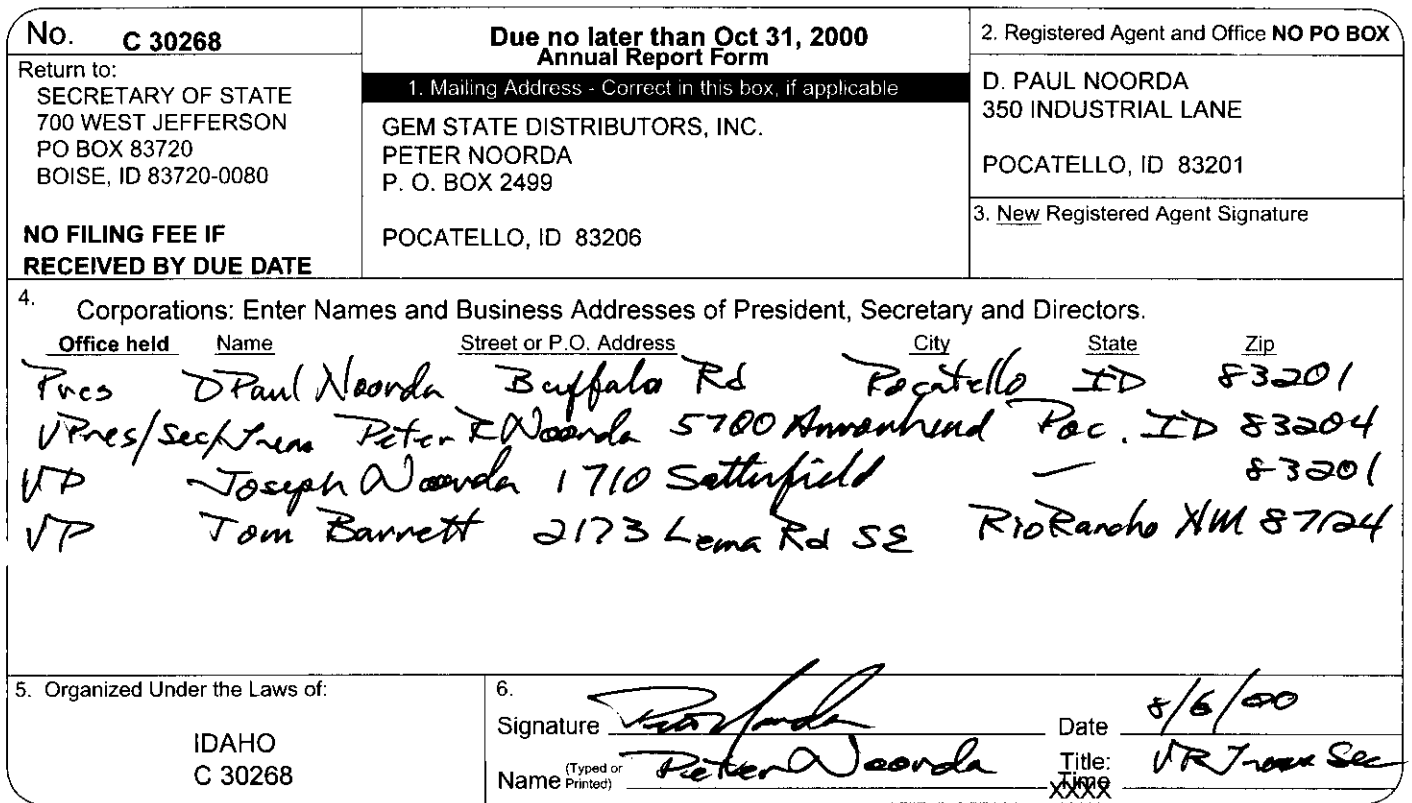 No. C 30268
Return to:
SECRETARY OF STATE
700 WEST JEFFERSON
PO BOX 83720
BOISE, ID 83720-0080
NO FILING FEE IF
RECEIVED BY DUE DATE
Due no later than Oct 31, 2000
Annual Report Form
1. Mailing Address - Correct in this box, if applicable
GEM STATE DISTRIBUTORS, INC.
PETER NOORDA
P. O. BOX 2499
POCATELLO, ID 83206
2. Registered Agent and Office NO PO BOX
D. PAUL NOORDA
350 INDUSTRIAL LANE
POCATELLO, ID 83201
3. New Registered Agent Signature
4. Corporations: Enter Names and Business Addresses of President, Secretary and Directors.
Office held Name Street or P.O. Address City State Zip
Pres D Paul Noorda Buffalo Rd Pocatello ID 83201
VPres/Sec/Treas Peter Noorda 5700 Poc. ID 83204
VP Joseph Noorda 1710 Satterfield — 83201
VP Tom Barrett 2173 Lema Rd SE Rio Rancho NM 87124
5. Organized Under the Laws of:
IDAHO
C 30268
6.
Signature Date 8/6/00
Name (Typed or Printed) Peter Noorda Title: VP Treas Sec